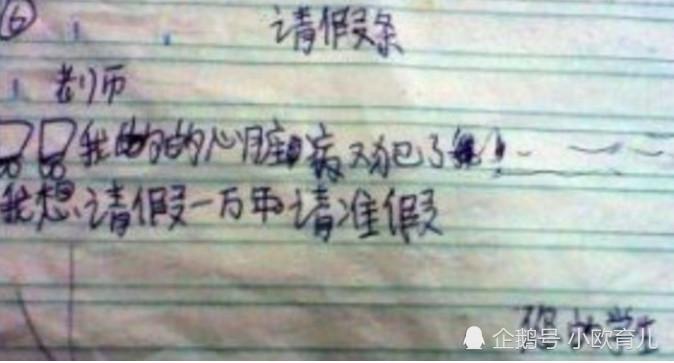 ⑥
请假条
老师
我的的心脏病又犯了
我想请假一万年请准假
学生
企鹅号 小欧育儿